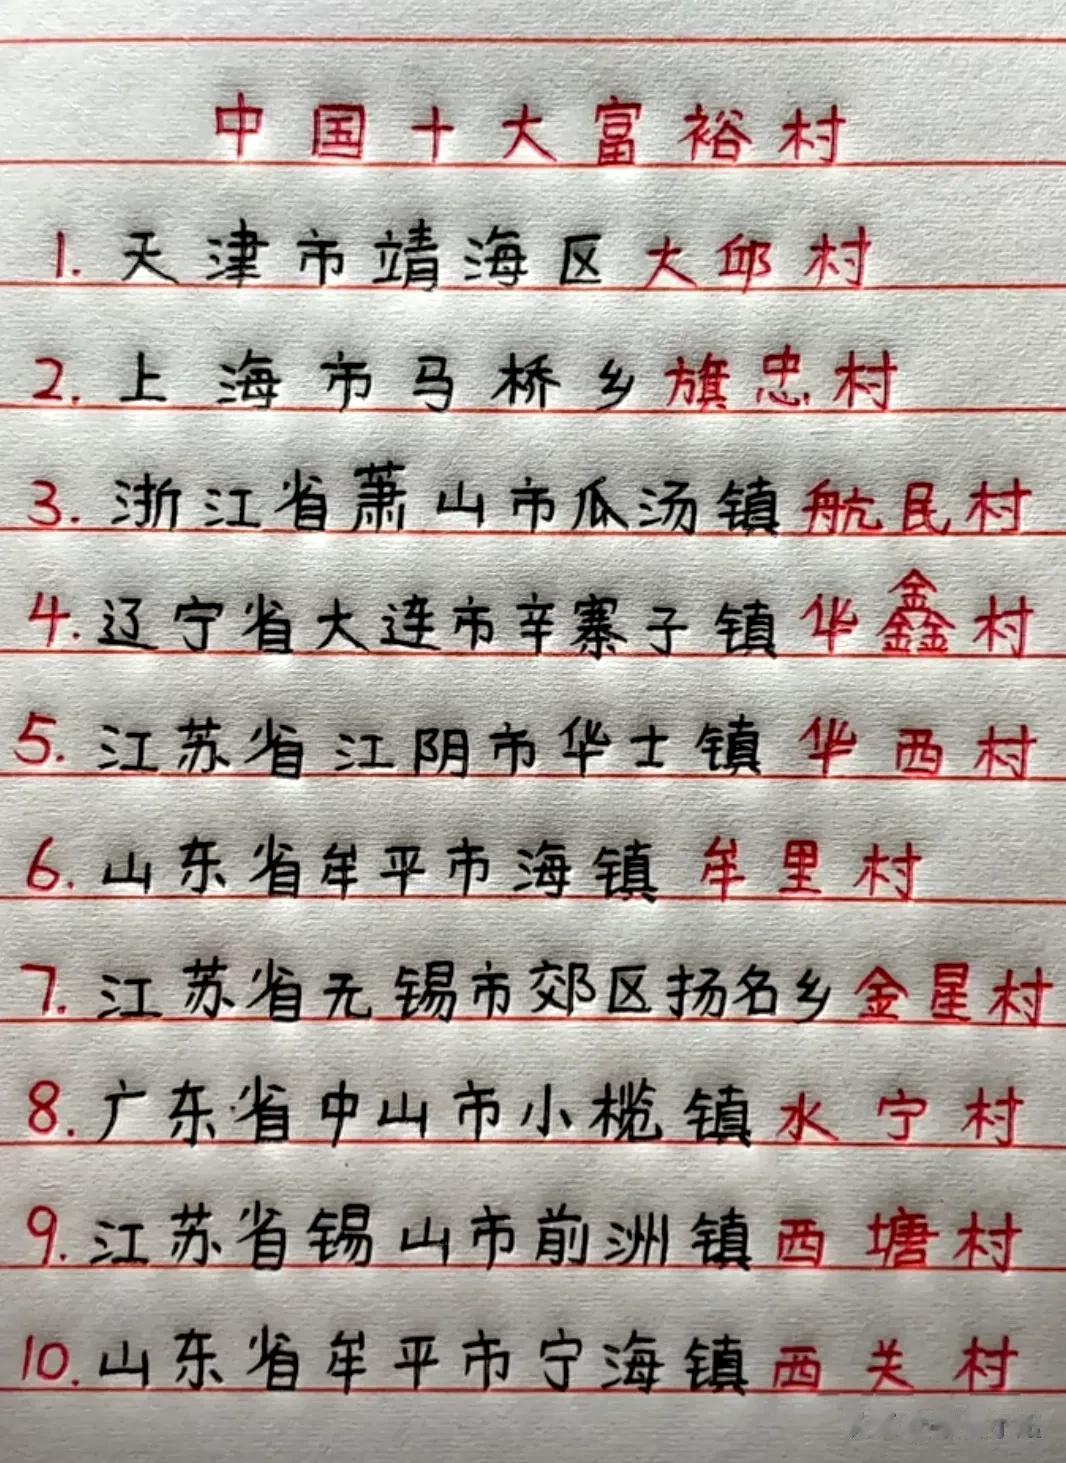 中国十大富裕村
1. 天津市靖海区大邱村
2. 上海市马桥乡旗忠村
3. 浙江省萧山市瓜汤镇航民村
4. 辽宁省大连市辛寨子镇华鑫村
5. 江苏省江阴市华士镇华西村
6. 山东省牟平市海镇牟里村
7. 江苏省无锡市郊区扬名乡金星村
8. 广东省中山市小榄镇水宁村
9. 江苏省锡山市前洲镇西塘村
10. 山东省牟平市宁海镇西关村